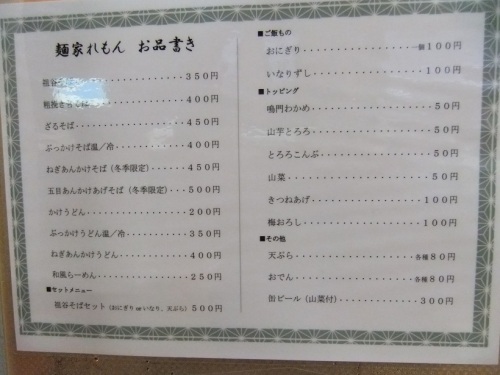 麺家れもん お品書き
祖谷・・・・・・・・・・・350円
・・・・・・・・・400円
ざるそば・・・・・・・・・・450円
ぶっかけそば温／冷・・・・・・400円
ねぎあんかけそば（冬季限定）・・・・・450円
五目あんかけあげそば（冬季限定）・・・・500円
かけうどん・・・・・・・・・200円
ぶっかけうどん温／冷・・・・・・350円
ねぎあんかけうどん・・・・・・・400円
和風らーめん・・・・・・・・250円
■セットメニュー
祖谷そばセット（おにぎり or いなり、天ぷら）500円
■ご飯もの
おにぎり・・・・・・・・・・一個100円
いなりずし・・・・・・・・・・100円
■トッピング
鳴門わかめ・・・・・・・・・・50円
山芋とろろ・・・・・・・・・・50円
とろろこんぶ・・・・・・・・・50円
山菜・・・・・・・・・・・・・50円
きつねあげ・・・・・・・・・・100円
梅おろし・・・・・・・・・・・100円
■その他
天ぷら・・・・・・・・・・・各種80円
おでん・・・・・・・・・・・各種80円
缶ビール（山菜付）・・・・・・・300円